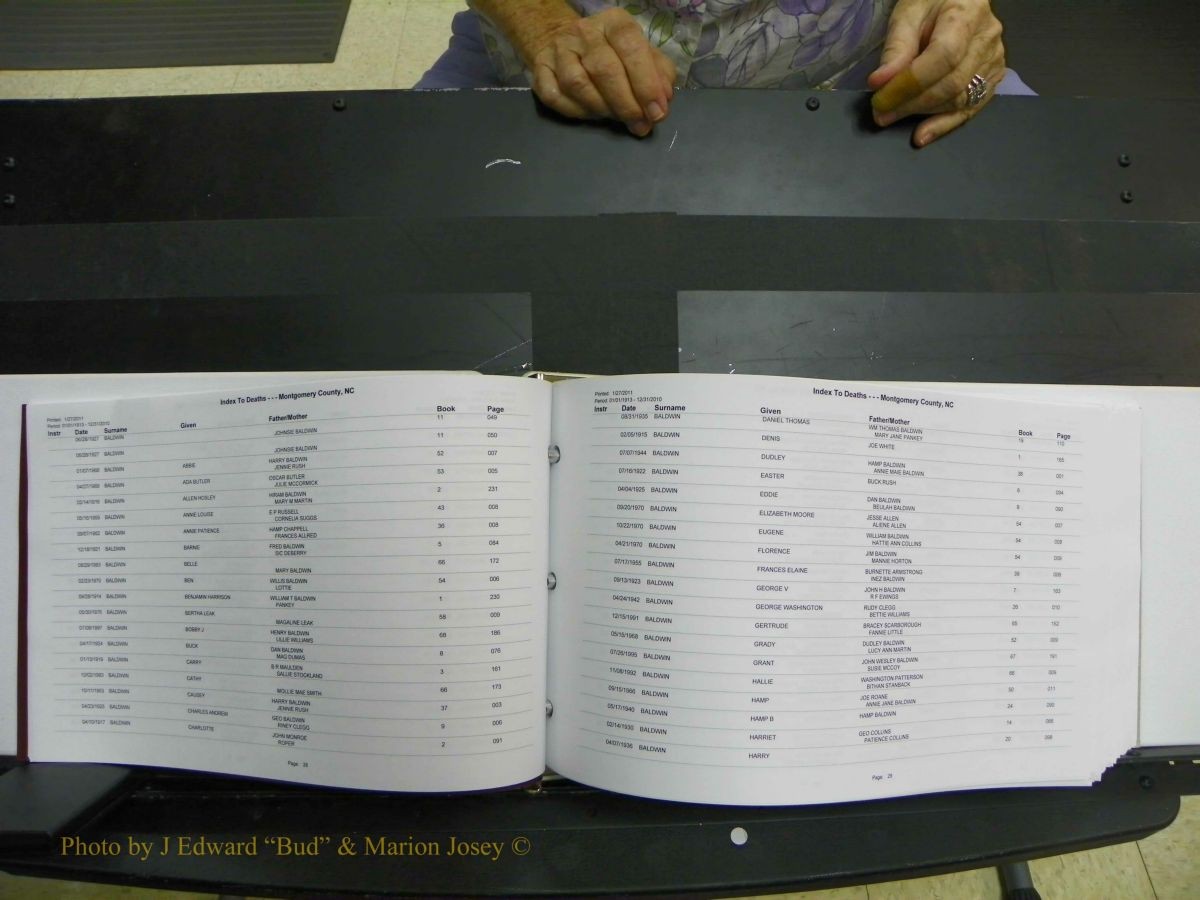 Index To Deaths - - - Montgomery County, NC
Printed: 1/27/2011
Period: 01/01/1913 - 12/31/2010
Instr Date Surname Given Father/Mother Book Page
06/28/1927 BALDWIN JOHNSIE BALDWIN 11 049
06/28/1927 BALDWIN JOHNSIE BALDWIN 11 050
01/07/1968 BALDWIN ABBIE HARRY BALDWIN 52 007
JENNIE RUSH
BALDWIN ADA BUTLER OSCAR BUTLER 53 005
JULIE MCCORMICK
BALDWIN ALLEN HOSLEY HIRAM BALDWIN 2 231
MARY M MARTIN
BALDWIN ANNIE LOUISE E P RUSSELL 43 008
CORNELIA SUGGS
BALDWIN ANNIE PATIENCE HAMP CHAPPELL 36 008
FRANCES ALLRED
12/18/1921 BALDWIN BARNE FRED BALDWIN 5 084
SIC DEBERRY
BALDWIN BELLE MARY BALDWIN 66 172
BALDWIN BEN WILLIS BALDWIN 54 006
LOTTIE
BALDWIN BENJAMIN HARRISON WILLIAM T BALDWIN 1 230
PANKEY
BALDWIN BERTHA LEAK MAGALINE LEAK 58 009
BALDWIN BOBBY J HENRY BALDWIN 68 186
LILLIE WILLIAMS
BALDWIN BUCK DAN BALDWIN 8 076
MAG DUMAS
BALDWIN CARRY B R MAULDEN 3 161
SALLIE STOCKLAND
BALDWIN CATHY MOLLIE MAE SMITH 66 173
BALDWIN CAUSEY HARRY BALDWIN 37 003
JENNIE RUSH
BALDWIN CHARLES ANDREW GEO BALDWIN 9 006
RINEY CLEGG
04/10/1917 BALDWIN CHARLOTTE JOHN MONROE 2 091
ROPER
Page: 28
Printed: 1/27/2011
Period: 01/01/1913 - 12/31/2010
Index To Deaths - - - Montgomery County, NC
Instr Date Surname Given Father/Mother Book Page
08/31/1935 BALDWIN DANIEL THOMAS WM THOMAS BALDWIN 19 110
MARY JANE PANKEY
02/05/1915 BALDWIN DENIS JOE WHITE 1 165
07/07/1944 BALDWIN DUDLEY HAMP BALDWIN 38 001
ANNIE MAIE BALDWIN
07/16/1922 BALDWIN EASTER BUCK RUSH 6 094
04/04/1925 BALDWIN EDDIE DAN BALDWIN 9 090
BEULAH BALDWIN
09/20/1970 BALDWIN ELIZABETH MOORE JESSE ALLEN 54 007
ALIENE ALLEN
10/22/1970 BALDWIN EUGENE WILLIAM BALDWIN 54 008
HATTIE ANN COLLINS
04/21/1970 BALDWIN FLORENCE JIM BALDWIN 54 009
MANNIE HORTON
07/17/1955 BALDWIN FRANCES ELAINE BURNETTE ARMSTRONG 39 009
INEZ BALDWIN
09/13/1923 BALDWIN GEORGE V JOHN H BALDWIN 7 103
R F EWINGS
04/24/1942 BALDWIN GEORGE WASHINGTON RUDY CLEGG 26 010
BETTIE WILLIAMS
12/15/1991 BALDWIN GERTRUDE BRACEY SCARBOROUGH 65 152
FANNIE LITTLE
05/15/1968 BALDWIN GRADY DUDLEY BALDWIN 52 009
LUCY ANN MARTIN
07/26/1995 BALDWIN GRANT JOHN WESLEY BALDWIN 67 191
SUSIE MCCOY
11/08/1992 BALDWIN HALLIE WASHINGTON PATTERSON 66 009
BITHAN STANBACK
09/15/1966 BALDWIN HAMP JOE ROANE 50 011
ANNIE JANE BALDWIN
05/17/1940 BALDWIN HAMP B HAMP BALDWIN 24 090
02/14/1930 BALDWIN HARRIET GEO COLLINS 14 088
PATIENCE COLLINS
04/07/1936 BALDWIN HARRY 20 098
Page: 29
Photo by J Edward “Bud” & Marion Josey ©